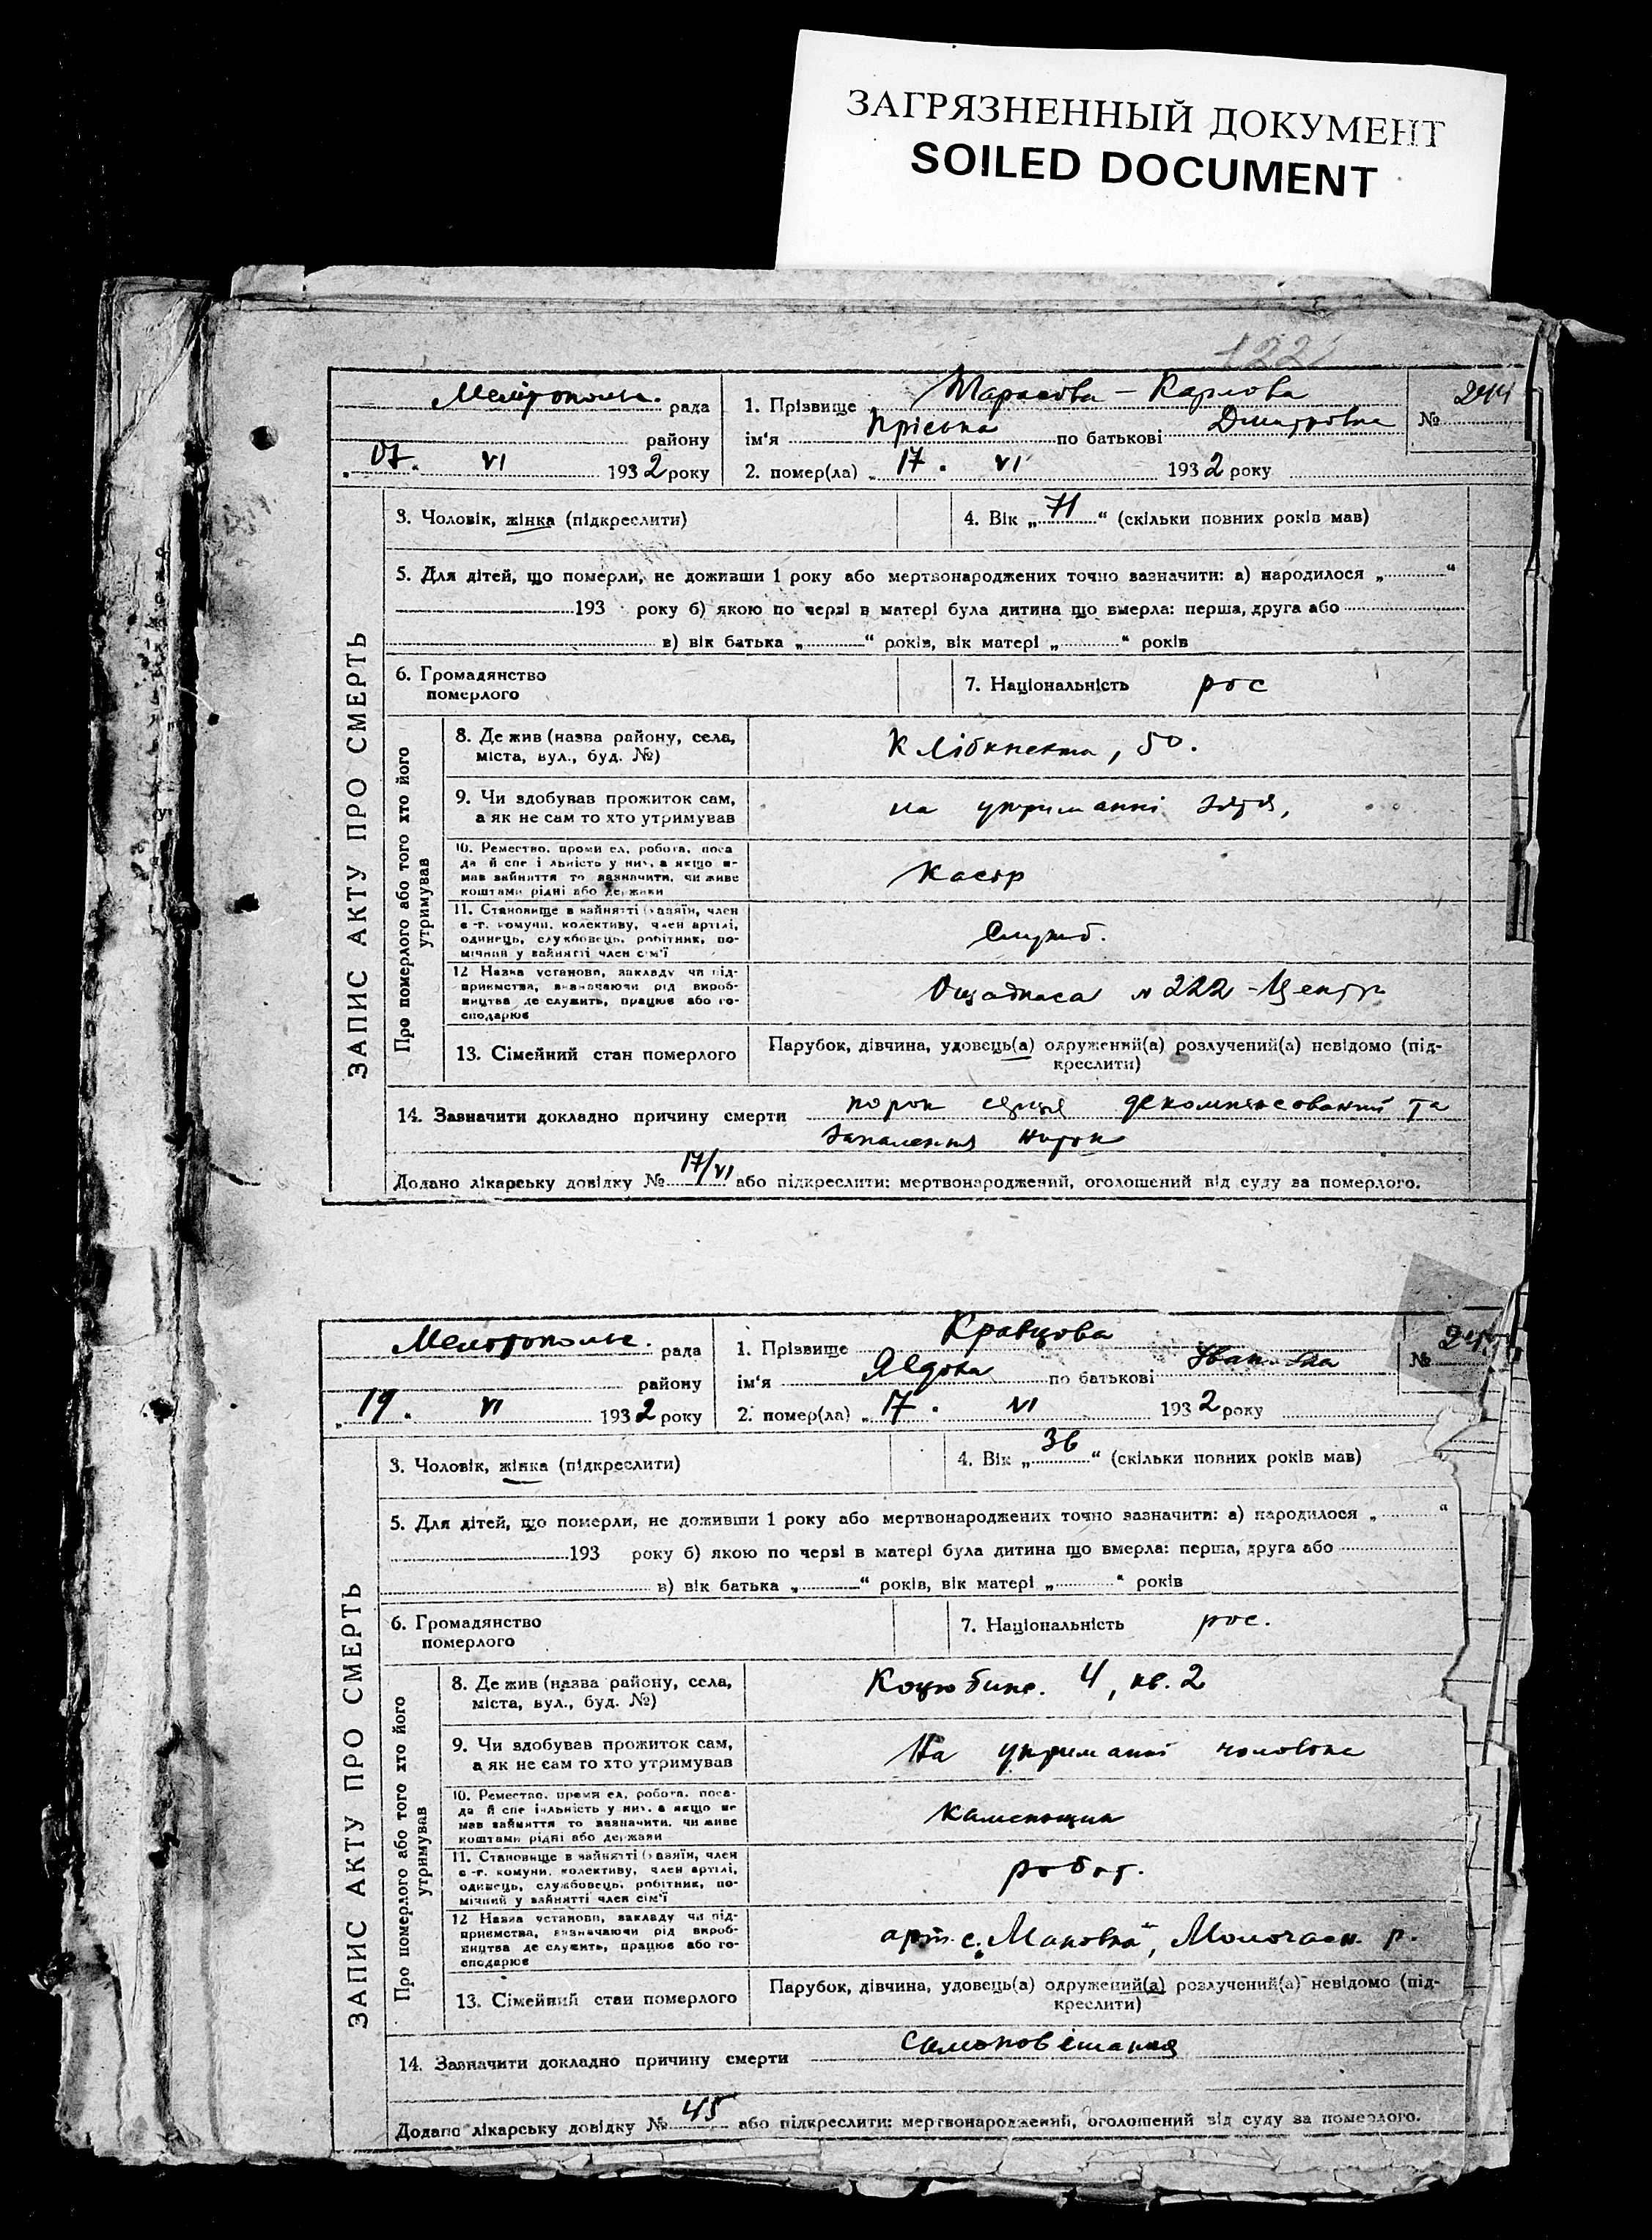 ЗАГРЯЗНЕННЫЙ ДОКУМЕНТ
SOILED DOCUMENT
122
Мелітопольс. рада
району
07. VI 1932 року
1. Прізвище Тарасова – Карлова
ім'я Пріська по батькові Дмитровна
2. помер(ла) „17. VI 1932 року
№ 244
ЗАПИС АКТУ ПРО СМЕРТЬ
3. Чоловік, жінка (підкреслити)
4. Вік „71“ (скільки повних років мав)
5. Для дітей, що померли, не доживши 1 року або мертвонароджених точно зазначити: а) народилося „ “
193 року б) якою по черзі в матері була дитина що вмерла: перша, друга або
в) вік батька „ “ років, вік матері „ “ років
6. Громадянство
померлого
7. Національність рос
Про померлого або того хто його
утримував
8. Де жив (назва району, села,
міста, вул., буд. №)
К Лібкнехта, 50.
9. Чи здобував прожиток сам,
а як не сам то хто утримував
на утриманні зятя,
10. Ремество, проми ел, робота, поса
да й спе і льність у них, а якщо не
мав зайняття то зазначити, чи живе
коштами рідні або держави
Касір
11. Становище в зайнятті (хазяїн, член
с.-г. комуни, колективу, член артілі,
одинець, службовець, робітник, по-
мічний у зайнятті член сім'ї
Служб.
12 Назва установи, закладу чи під-
приємства, зазначаючи рід вироб-
ництва де служить, працює або го-
сподарює
Ощадкаса № 222 - Центр
13. Сімейний стан померлого
Парубок, дівчина, удовець(а) одружений(а) розлучений(а) невідомо (під-
креслити)
14. Зазначити докладно причину смерти порок серця декомпенсований та
запалення нирок
Додано лікарську довідку № 17/VI або підкреслити: мертвонароджений, оголошений від суду за померлого.
Мелітопольс. рада
району
„19. VI 1932 року
1. Прізвище Кравцова
ім'я Явдоха по батькові Іванівна
2. помер(ла) „17. VI 1932 року
№
ЗАПИС АКТУ ПРО СМЕРТЬ
3. Чоловік, жінка (підкреслити)
4. Вік „36“ (скільки повних років мав)
5. Для дітей, що померли, не доживши 1 року або мертвонароджених точно зазначити: а) народилося „ “
193 року б) якою по черзі в матері була дитина що вмерла: перша, друга або
в) вік батька „ “ років, вік матері „ “ років
6. Громадянство
померлого
7. Національність рос.
Про померлого або того хто його
утримував
8. Де жив (назва району, села,
міста, вул., буд. №)
Коцюбинс. 4, кв. 2
9. Чи здобував прожиток сам,
а як не сам то хто утримував
На утриманні чоловіка
10. Ремество, проми ел, робота, поса-
да й спе іяльність у них, а якщо не
мав зайняття то зазначити, чи живе
коштами рідні або держави
Каменщик
11. Становище в зайнятті (хазяїн, член
с.-г. комуни, колективу, член артілі,
одинець, службовець, робітник, по-
мічний у зайнятті член сім'ї
робоч.
12 Назва установи, закладу чи під-
приємства, зазначаючи рід вироб-
ництва де служить, працює або го-
сподарює
арт. с. „Маковка“, Молочан. р.
13. Сімейний стан померлого
Парубок, дівчина, удовець(а) одружений(а) розлучений(а) невідомо (під-
креслити)
14. Зазначити докладно причину смерти самоповішання
Додано лікарську довідку № 45 або підкреслити: мертвонароджений, оголошений від суду за померлого.